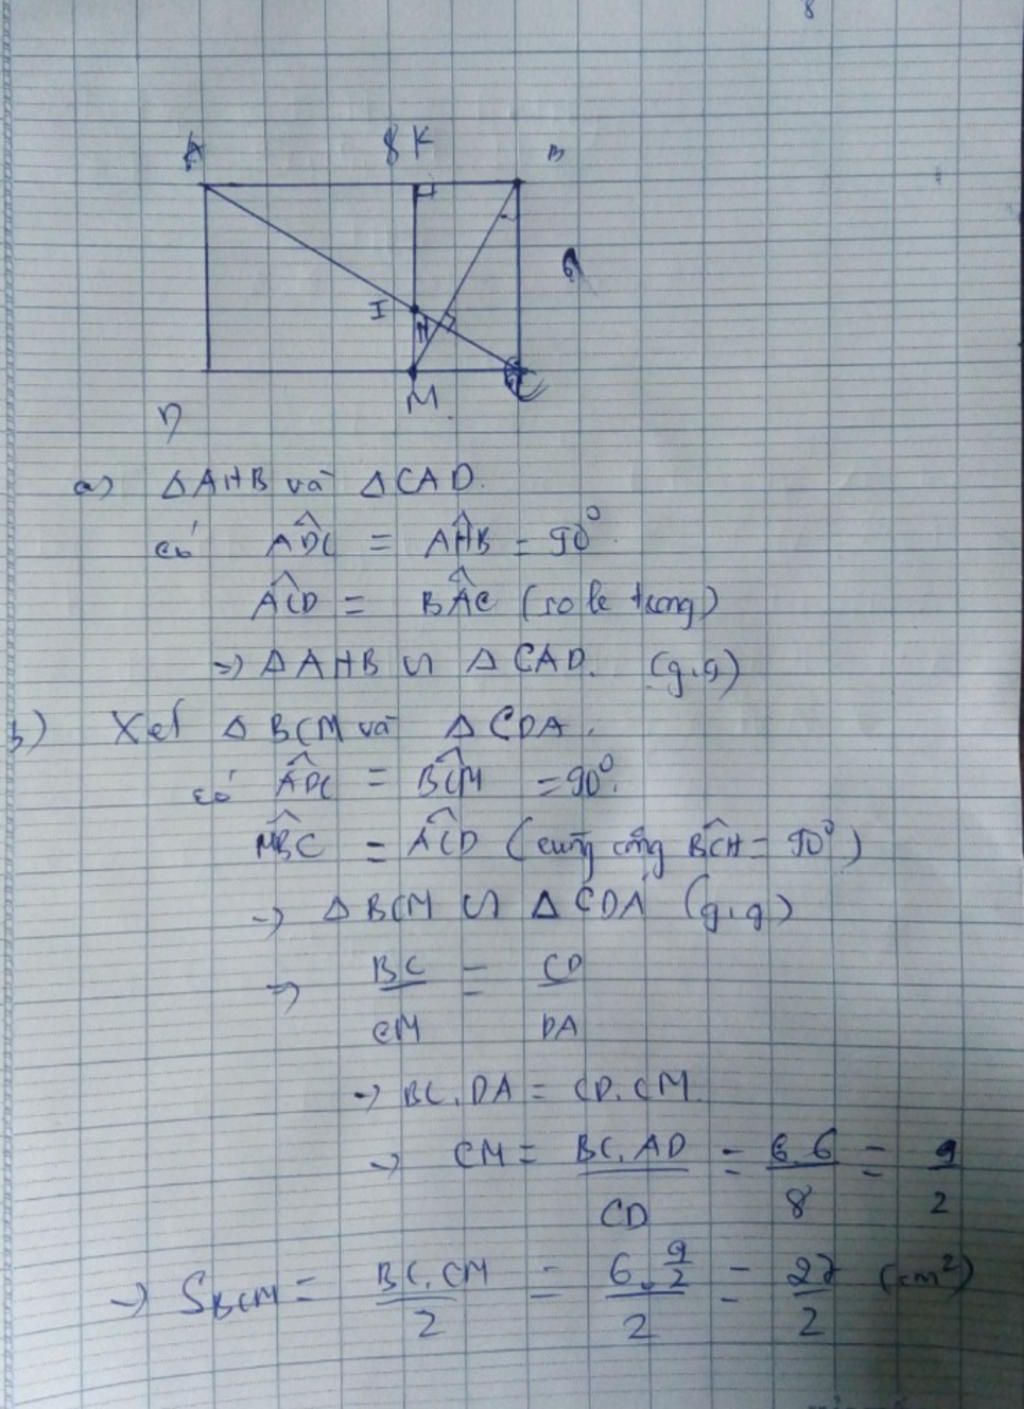 8
A 8 K B
6
I
H
M C
D
a) Δ AHB và Δ CAD.
có ADC = AHB = 90°
ACD = BAC (so le trong)
=> Δ AHB ∽ Δ CAD. (g.g)
b) Xét Δ BCM và Δ CDA.
có ADC = BCM = 90°.
MBC = ACD (cùng cộng BCH = 90°)
-> Δ BCM ∽ Δ CDA (g.g)
=> BC/CM = CD/DA
-> BC.DA = CD.CM
-> CM = BC.AD/CD = 6.6/8 = 9/2
-> SBCM = BC.CM/2 = 6.9/2/2 = 27/2 (cm²)